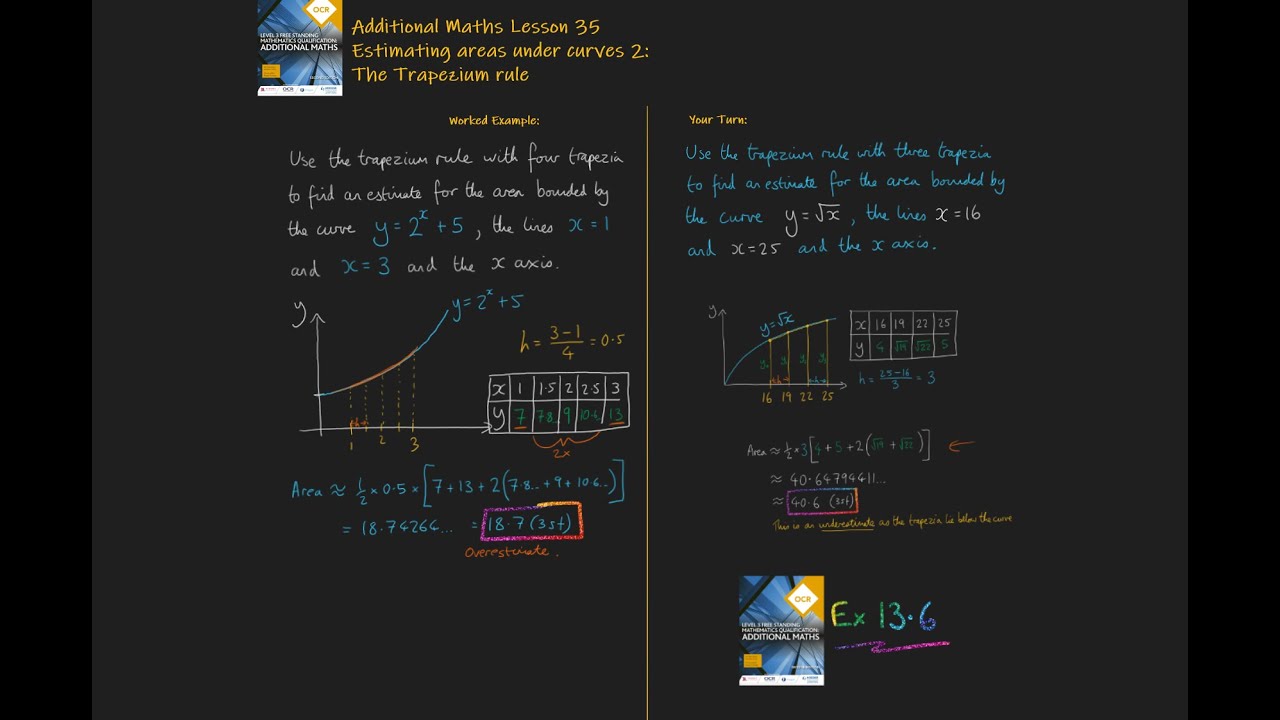 OCR
LEVEL 3 FREE STANDING
MATHEMATICS QUALIFICATION:
ADDITIONAL MATHS
Additional Maths Lesson 35
Estimating areas under curves 2:
The Trapezium rule
Worked Example:
Use the trapezium rule with four trapezia
to find an estimate for the area bounded by
the curve y = 2ˣ + 5 , the lines x = 1
and x = 3 and the x axis.
y
y = 2ˣ + 5
h = (3-1)/4 = 0.5
x 1 1.5 2 2.5 3
y 7 7.8... 9 10.6.. 13
2x
h
1 2 3
Area ≈ ½ × 0.5 × [7 + 13 + 2(7.8... + 9 + 10.6...)]
= 18.74264... = 18.7 (3sf)
Overestimate.
Your Turn:
Use the trapezium rule with three trapezia
to find an estimate for the area bounded by
the curve y = √x , the lines x = 16
and x = 25 and the x axis.
y
y = √x
x 16 19 22 25
y 4 √19 √22 5
h = (25-16)/3 = 3
16 19 22 25
Area ≈ ½ × 3[4 + 5 + 2(√19 + √22)] ←
≈ 40.64794411...
≈ 40.6 (3sf)
This is an underestimate as the trapezia lie below the curve
OCR
LEVEL 3 FREE STANDING
MATHEMATICS QUALIFICATION:
ADDITIONAL MATHS
Ex 13.6